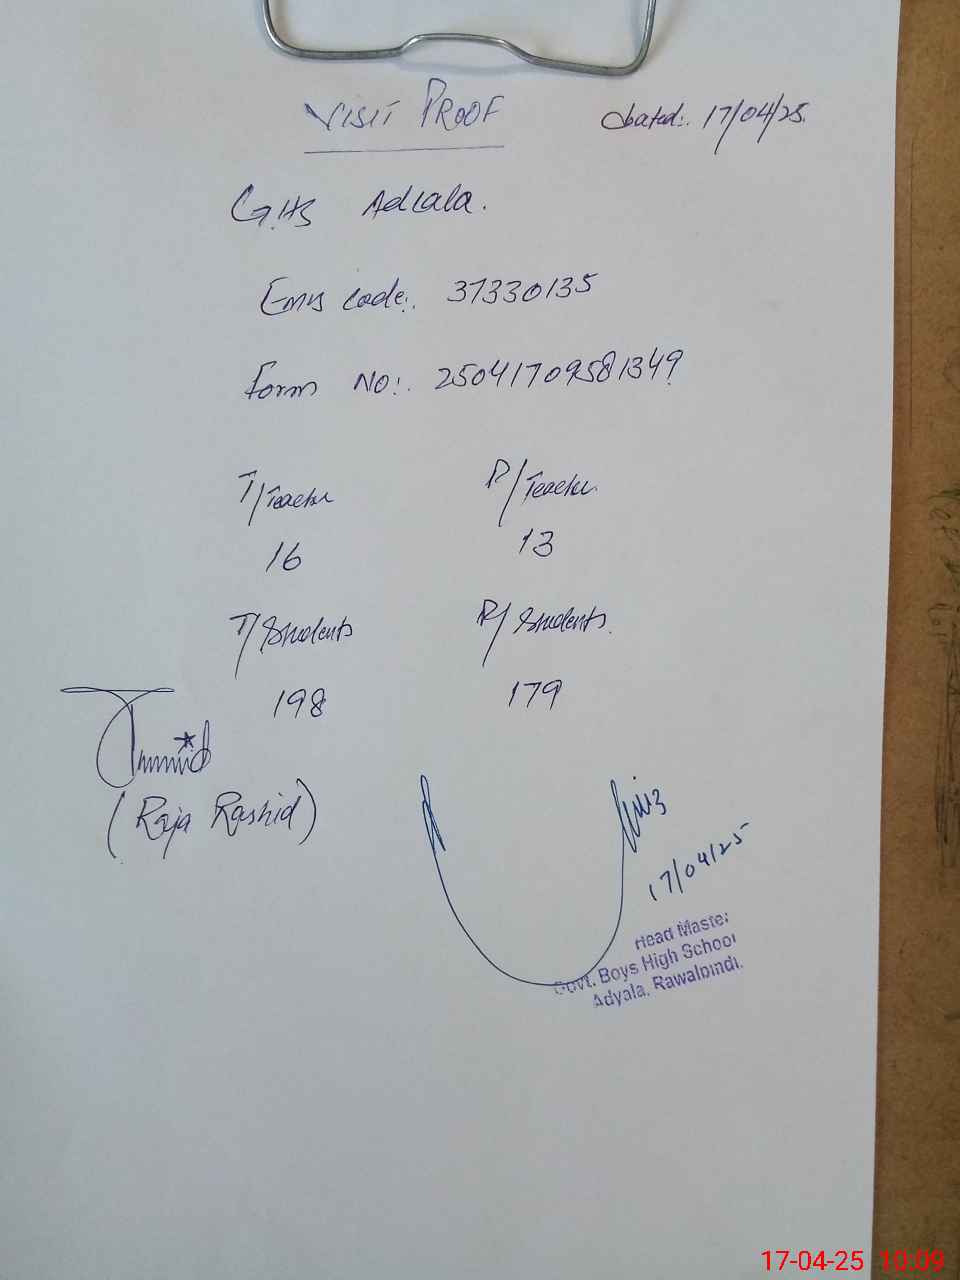 VISIT PROOF dated:. 17/04/25.
GHS Adiala.
Emis code:. 37330135
Form No:. 25041709581349
T/Teacher P/Teacher.
16 13
T/Students P/Students.
198 179
(Raja Rashid)
17/04/25
Head Master
Govt. Boys High School
Adyala, Rawalpindi.
17-04-25 10:09